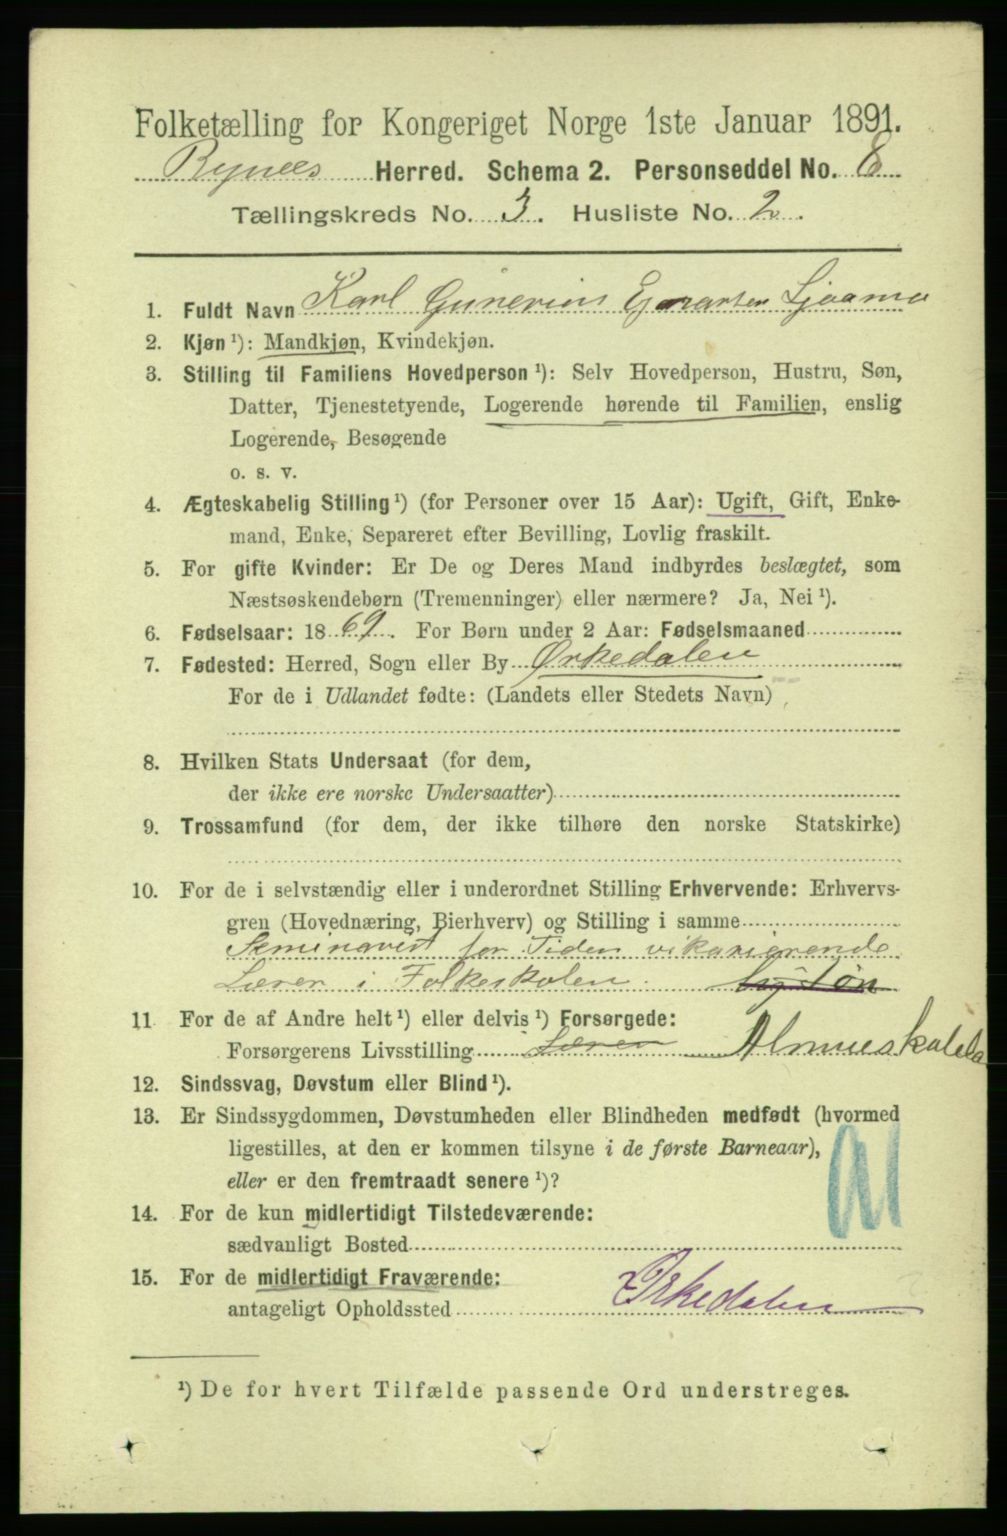 Folketælling for Kongeriget Norge 1ste Januar 1891.
Bynæs Herred. Schema 2. Personseddel No. 8
Tællingskreds No. 3. Husliste No. 2.
1. Fuldt Navn Karl Gunerius
2. Kjøn ¹): Mandkjøn, Kvindekjøn.
3. Stilling til Familiens Hovedperson ¹): Selv Hovedperson, Hustru, Søn,
Datter, Tjenestetyende, Logerende hørende til Familien, enslig
Logerende, Besøgende
o. s. v.
4. Ægteskabelig Stilling ¹) (for Personer over 15 Aar): Ugift, Gift, Enke-
mand, Enke, Separeret efter Bevilling, Lovlig fraskilt.
5. For gifte Kvinder: Er De og Deres Mand indbyrdes beslægtet, som
Næstsøskendebørn (Tremenninger) eller nærmere? Ja, Nei ¹).
6. Fødselsaar: 1869. For Børn under 2 Aar: Fødselsmaaned
7. Fødested: Herred, Sogn eller By Ørkedalen
For de i Udlandet fødte: (Landets eller Stedets Navn)
8. Hvilken Stats Undersaat (for dem,
der ikke ere norske Undersaatter)
9. Trossamfund (for dem, der ikke tilhøre den norske Statskirke)
10. For de i selvstændig eller i underordnet Stilling Erhvervende: Erhvervs-
gren (Hovednæring, Bierhverv) og Stilling i samme
Seminarist for Tiden vikarierende
Lærer i Folkeskolen.
11 For de af Andre helt ¹) eller delvis ¹) Forsørgede:
Forsørgerens Livsstilling Lærer
12. Sindssvag, Døvstum eller Blind ¹).
13. Er Sindssygdommen, Døvstumheden eller Blindheden medfødt (hvormed
ligestilles, at den er kommen tilsyne i de første Barneaar),
eller er den fremtraadt senere ¹)?
14. For de kun midlertidigt Tilstedeværende:
sædvanligt Bosted
15. For de midlertidigt Fraværende:
antageligt Opholdssted Ørkedalen
¹) De for hvert Tilfælde passende Ord understreges.